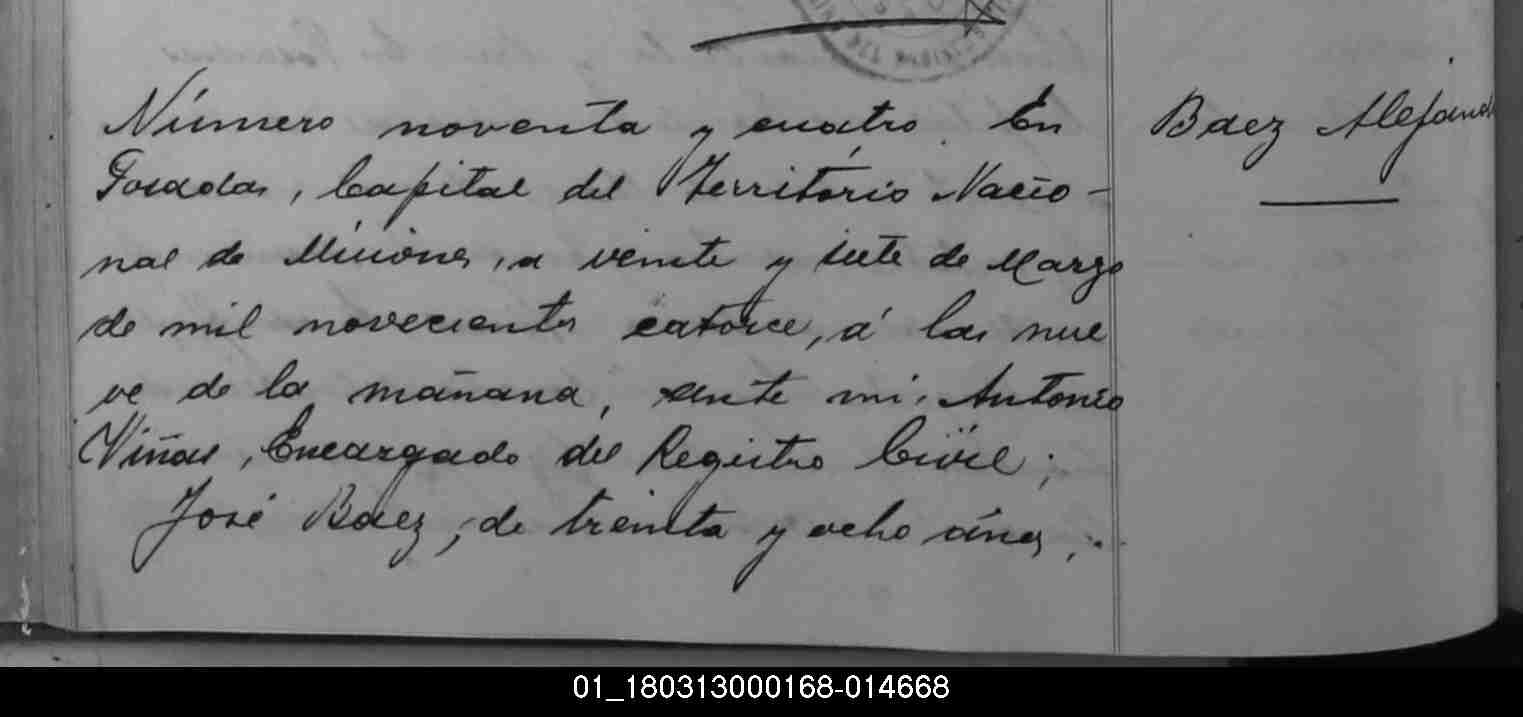 Número noventa y cuatro. En
Posadas, Capital del Território Nacio-
nal de Misiones, a veinte y siete de Marzo
de mil novecientos catorce, á las nue
ve de la mañana, ante mi, Antonio
Viñas, Encargado del Registro Civil;
José Baez, de treinta y ocho áños,
Baez Alejand
01_180313000168-014668